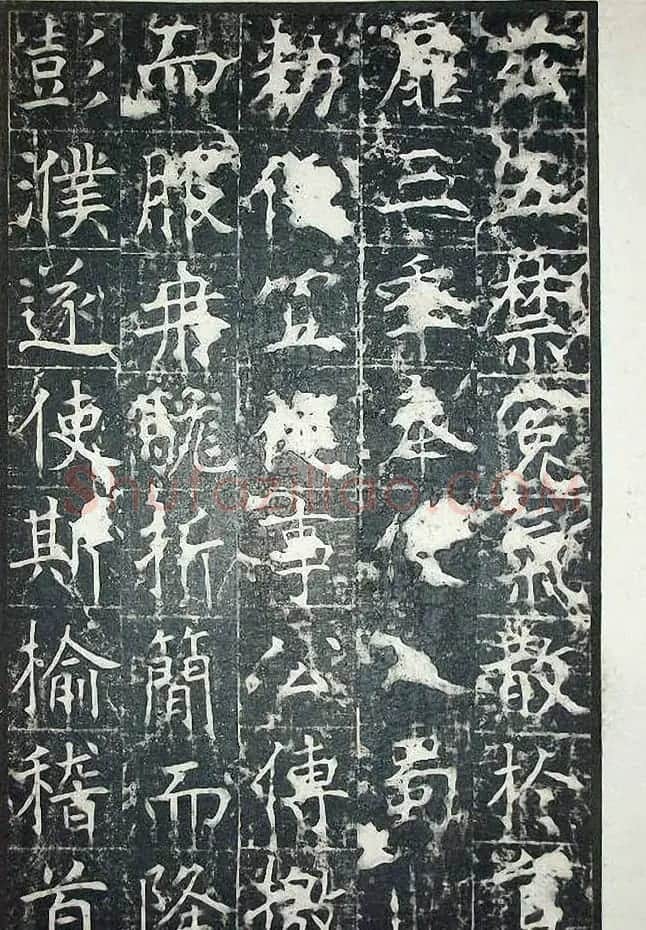 兹五禁冤氣散於
三年奉使入蜀
勑宜事公傳檄
而服冉駹折簡而降
彭濮遂使斯榆稽首
Shufaziliao.COM